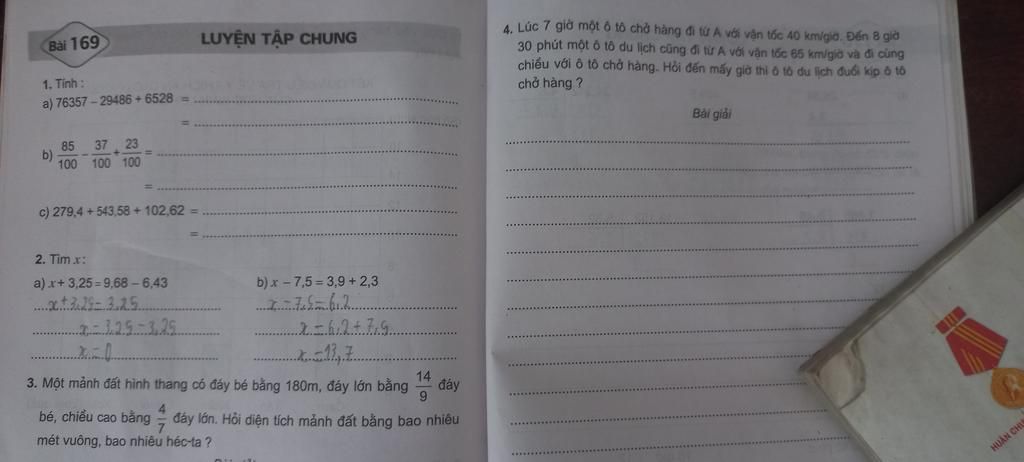 Bài 169
LUYỆN TẬP CHUNG
1. Tính :
a) 76357 – 29486 + 6528 =
=
b) 85/100 – 37/100 + 23/100 =
=
c) 279,4 + 543,58 + 102,62 =
=
2. Tìm x :
a) x + 3,25 = 9,68 – 6,43
x + 3,25 = 3,25
x = 3,25 – 3,25
x = 0
b) x – 7,5 = 3,9 + 2,3
x – 7,5 = 6,2
x = 6,2 + 7,5
x = 13,7
3. Một mảnh đất hình thang có đáy bé bằng 180m, đáy lớn bằng 14/9 đáy
bé, chiều cao bằng 4/7 đáy lớn. Hỏi diện tích mảnh đất bằng bao nhiêu
mét vuông, bao nhiêu héc-ta ?
4. Lúc 7 giờ một ô tô chở hàng đi từ A với vận tốc 40 km/giờ. Đến 8 giờ
30 phút một ô tô du lịch cũng đi từ A với vận tốc 65 km/giờ và đi cùng
chiều với ô tô chở hàng. Hỏi đến mấy giờ thì ô tô du lịch đuổi kịp ô tô
chở hàng ?
Bài giải
HUÂN CHƯ